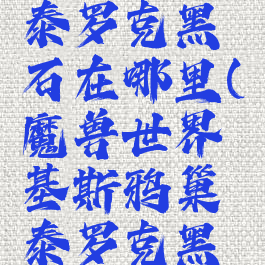 泰罗克黑
石在哪里(
魔兽世界
基斯鸦巢
泰罗克黑